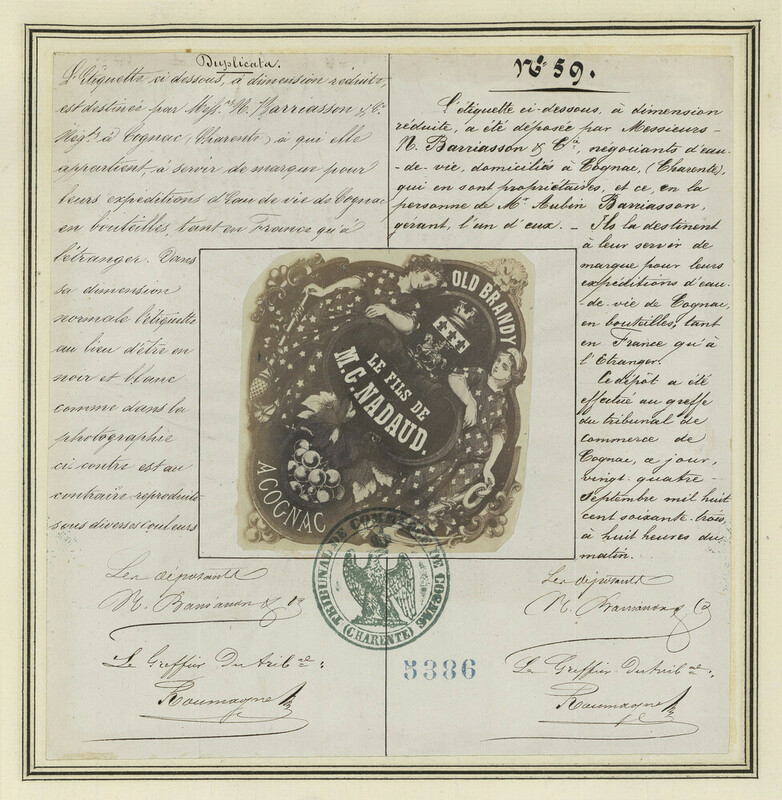 Duplicata.
L'Etiquette ci dessous, à dimension réduite,
est destinée par Mess.rs N. Barriasson & Cie
Négts à Cognac (Charente) à qui elle
appartient, à servir de marque pour
leurs expéditions d'Eau de vie de Cognac
en bouteilles, tant en France qu'à
l'étranger. Dans
sa dimension
normale l'étiquette
au lieu d'être en
noir et blanc
comme dans la
photographie
ci contre est au
contraire reproduite
sous diverses couleurs
Les déposants
N. Barriasson & Cie
Le Greffier du trib.al:
Roumagne
No 59.
L'étiquette ci-dessous, à dimension
réduite, a été déposée par Messieurs-
N. Barriasson & Cie, négociants d'eau-
de-vie, domiciliés à Cognac, (Charente),
qui en sont propriétaires, et ce, en la
personne de Mr Aubin Barriasson,
gérant, l'un d'eux. - Ils la destinent
à leur servir de
marque pour leurs
expéditions d'eau-
de-vie de Cognac,
en bouteilles, tant
en France qu'à
l'Etranger.
Ce dépôt a été
effectué au greffe
du tribunal de
commerce de
Cognac, ce jour,
vingt-quatre-
septembre mil huit
cent soixante-trois,
à huit heures du
matin.
Les déposants
N. Barriasson & Cie
Le Greffier du trib.al:
Roumagne
OLD BRANDY
LE FILS DE
M.C. NADAUD.
A COGNAC
TRIBUNAL DE COMMERCE DE COGNAC
(CHARENTE)
5386